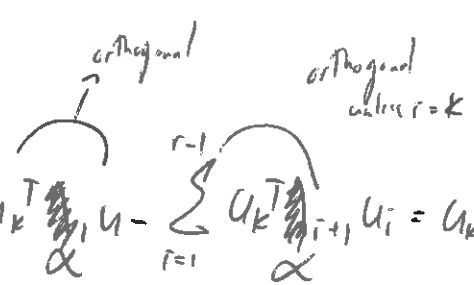 orthogonal
orthogonal
unless i = k
r-1
u_k^T α_1 u - Σ u_k^T α_{i+1} u_i = u_k
i=1